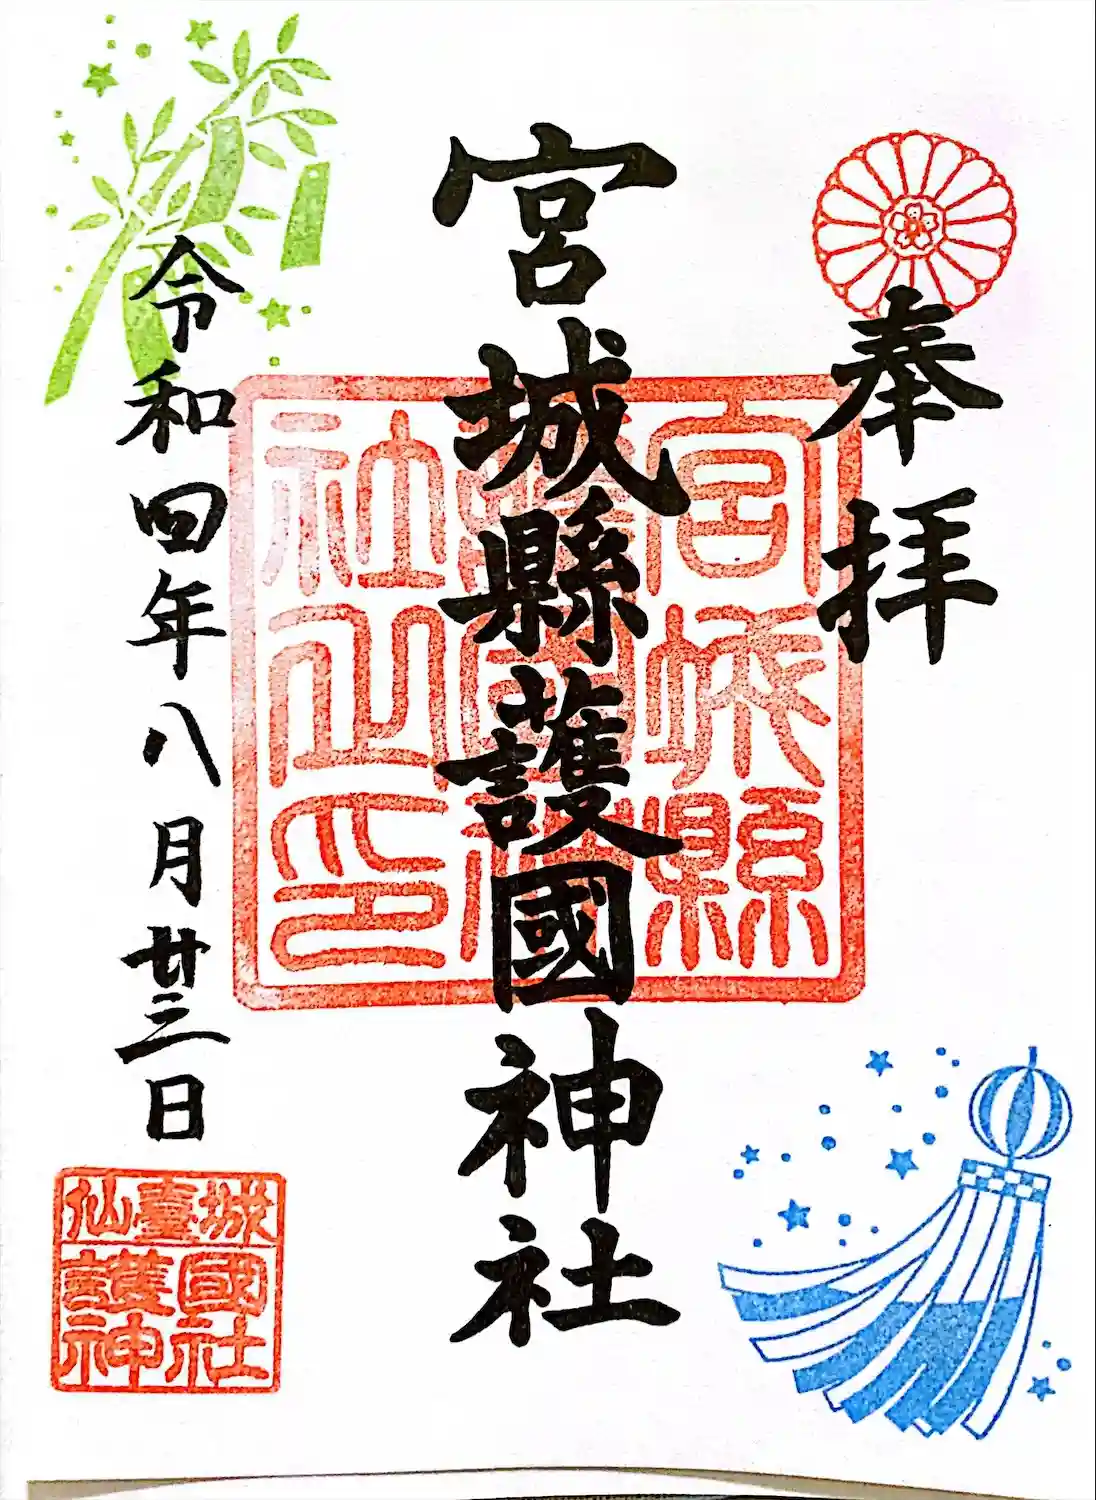 奉拝
宮城縣護國神社
宮城縣
護國神
社之印
令和四年八月廿三日
仙臺城
護國
神社